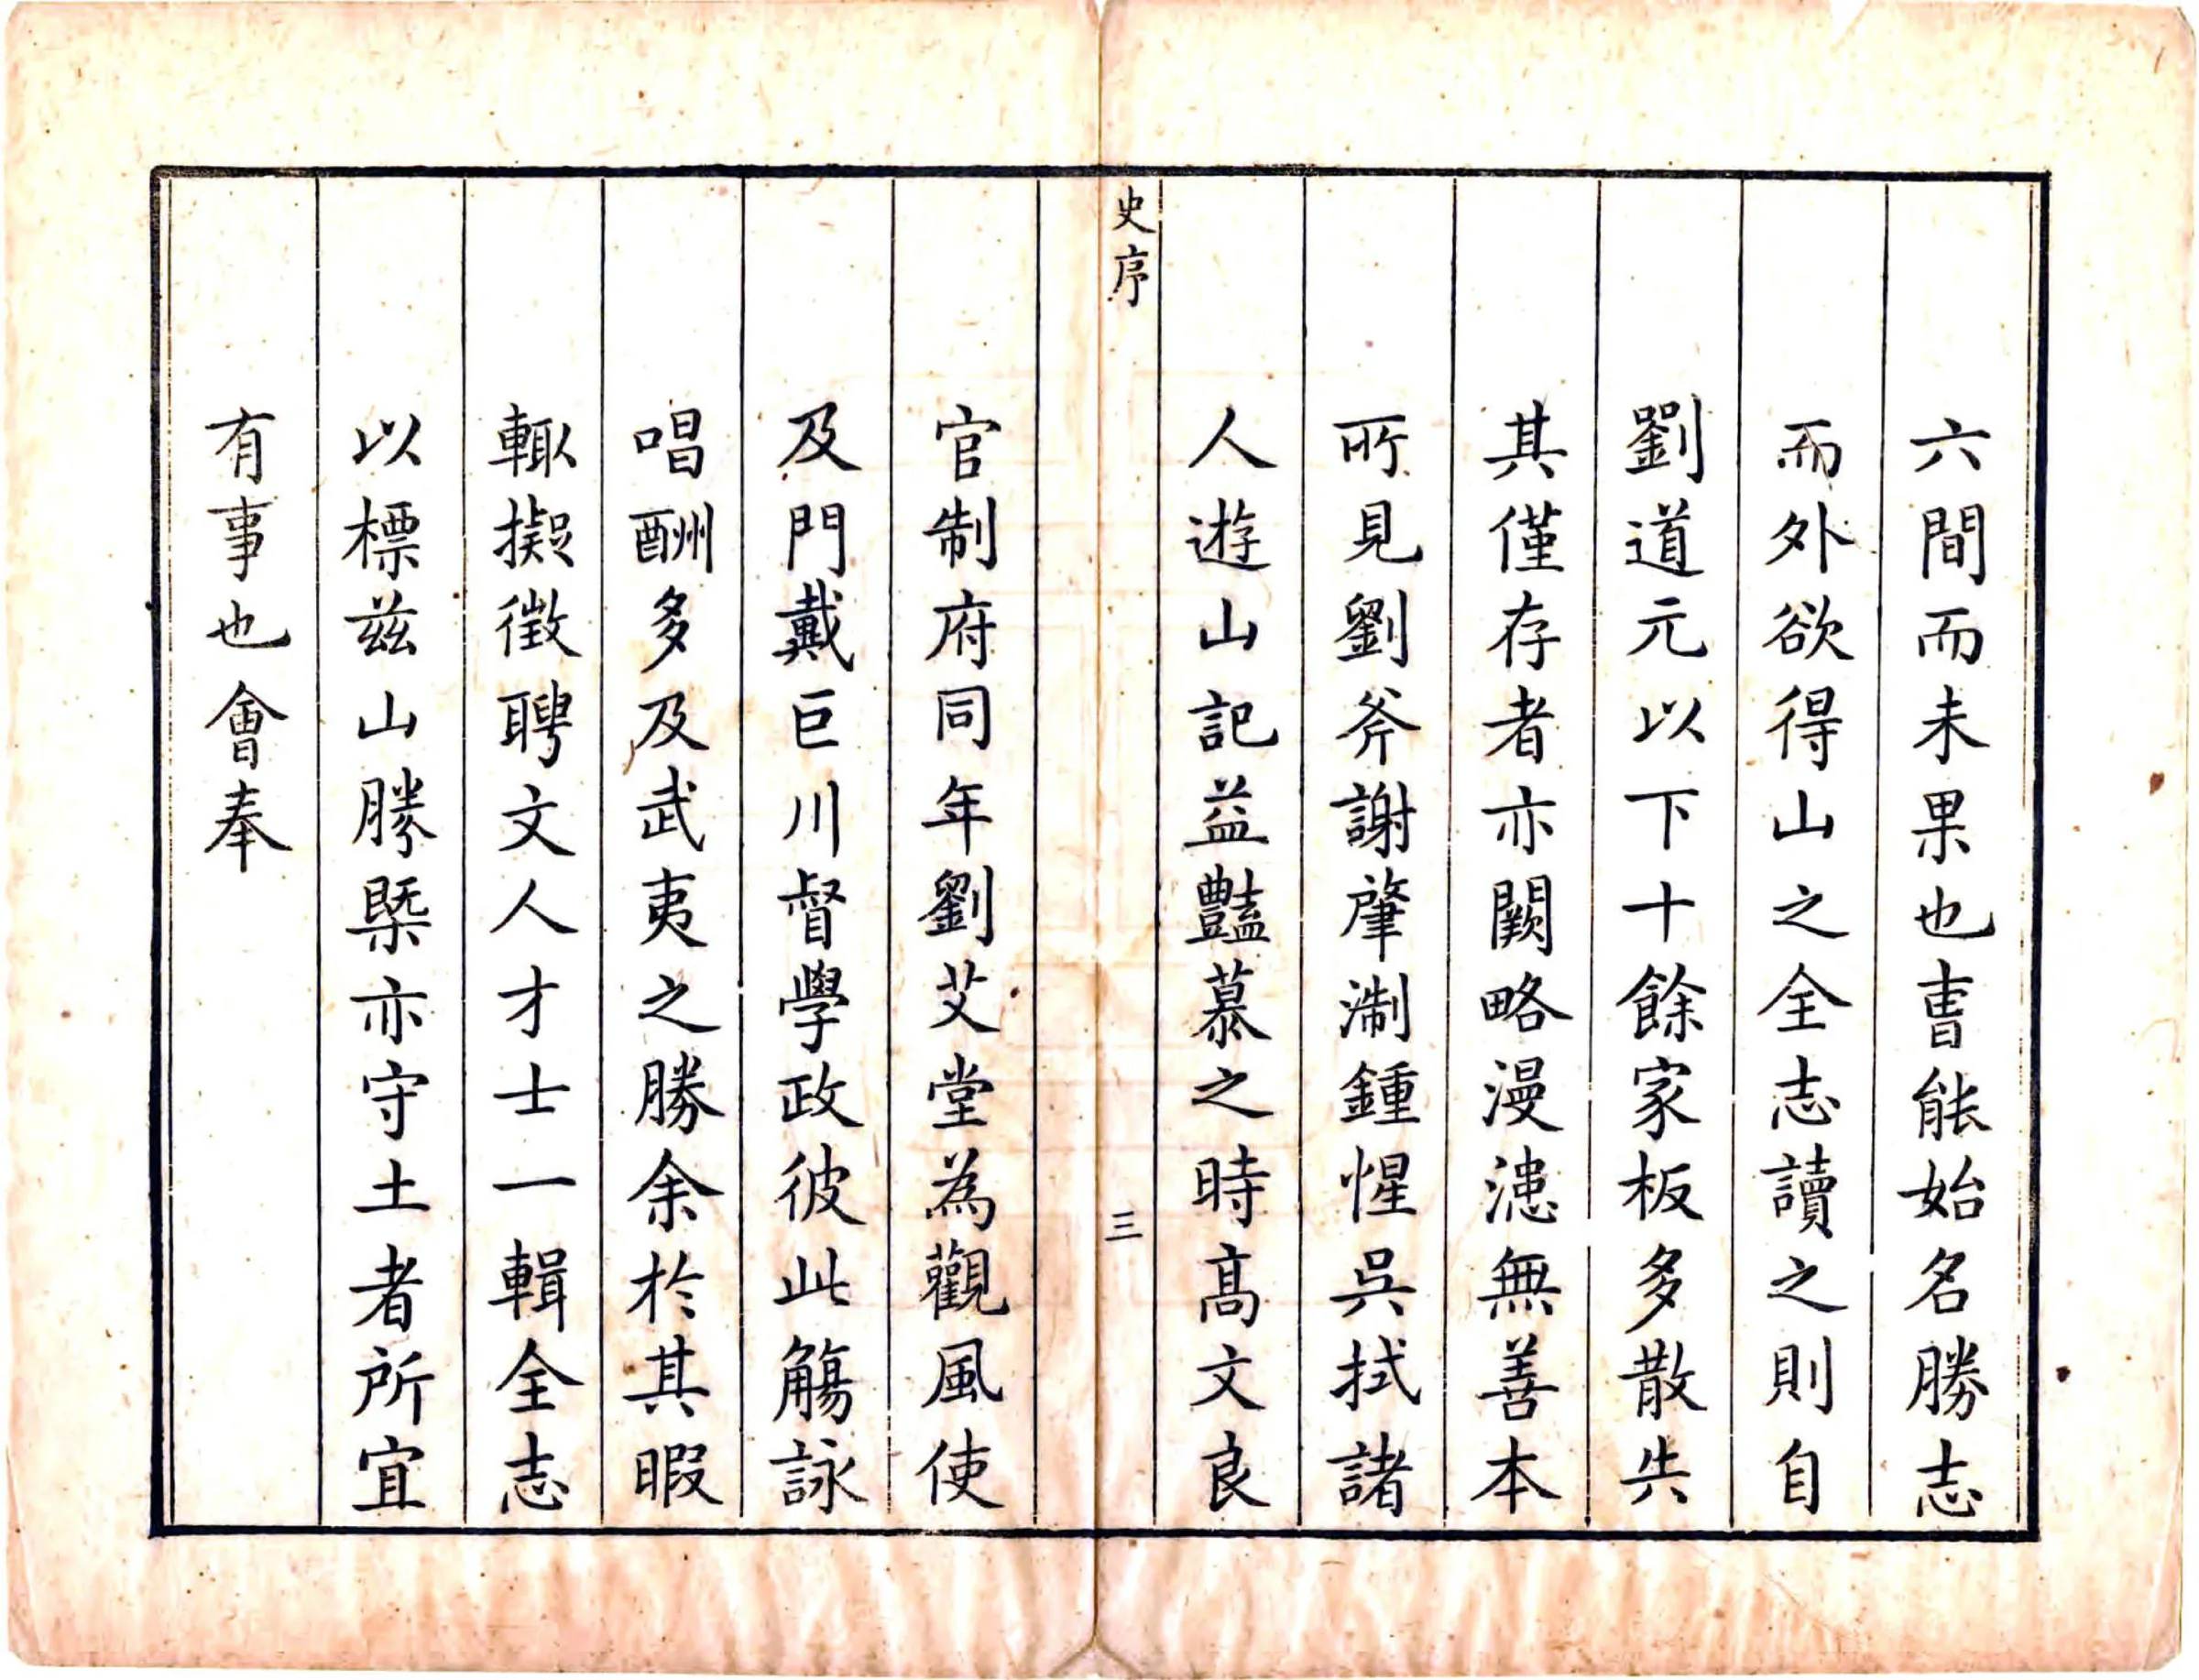 六間而未果也曺能始名勝志
而外欲得山之全志讀之則自
劉道元以下十餘家板多散失
其僅存者亦闕略漫漶無善本
所見劉斧謝肇淛鍾惺吳拭諸
人遊山記益豔慕之時髙文良
史序
三
官制府同年劉艾堂為觀風使
及門戴巨川督學政彼此觴詠
唱酬多及武夷之勝余於其暇
輙擬徴聘文人才士一輯全志
以標茲山勝槩亦守土者所宜
有事也會奉